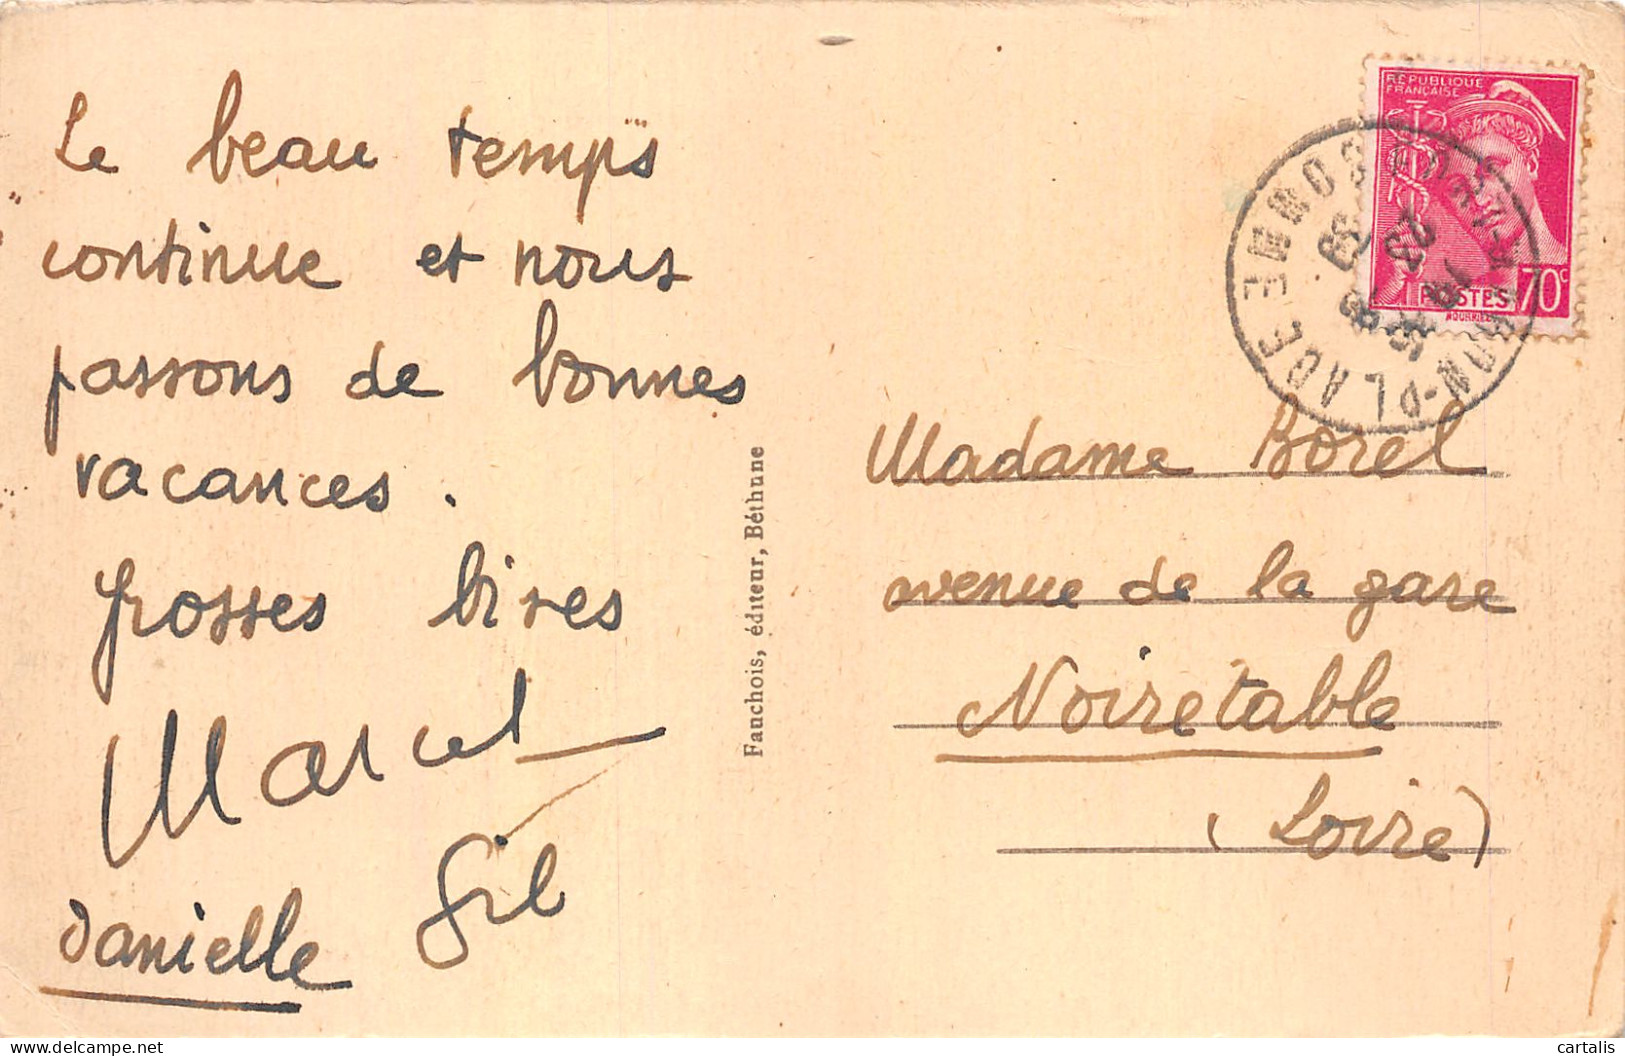 Le beau temps
continue et nous
passons de bonnes
vacances.
Grosses bises
Marcel
Gil
Danielle
Fauchois, éditeur, Béthune
RÉPUBLIQUE
FRANÇAISE
POSTES
70c
SOMME
PLAGE
Madame Borel
avenue de la gare
Noiretable
(Loire)
delcampe.net
cartalis